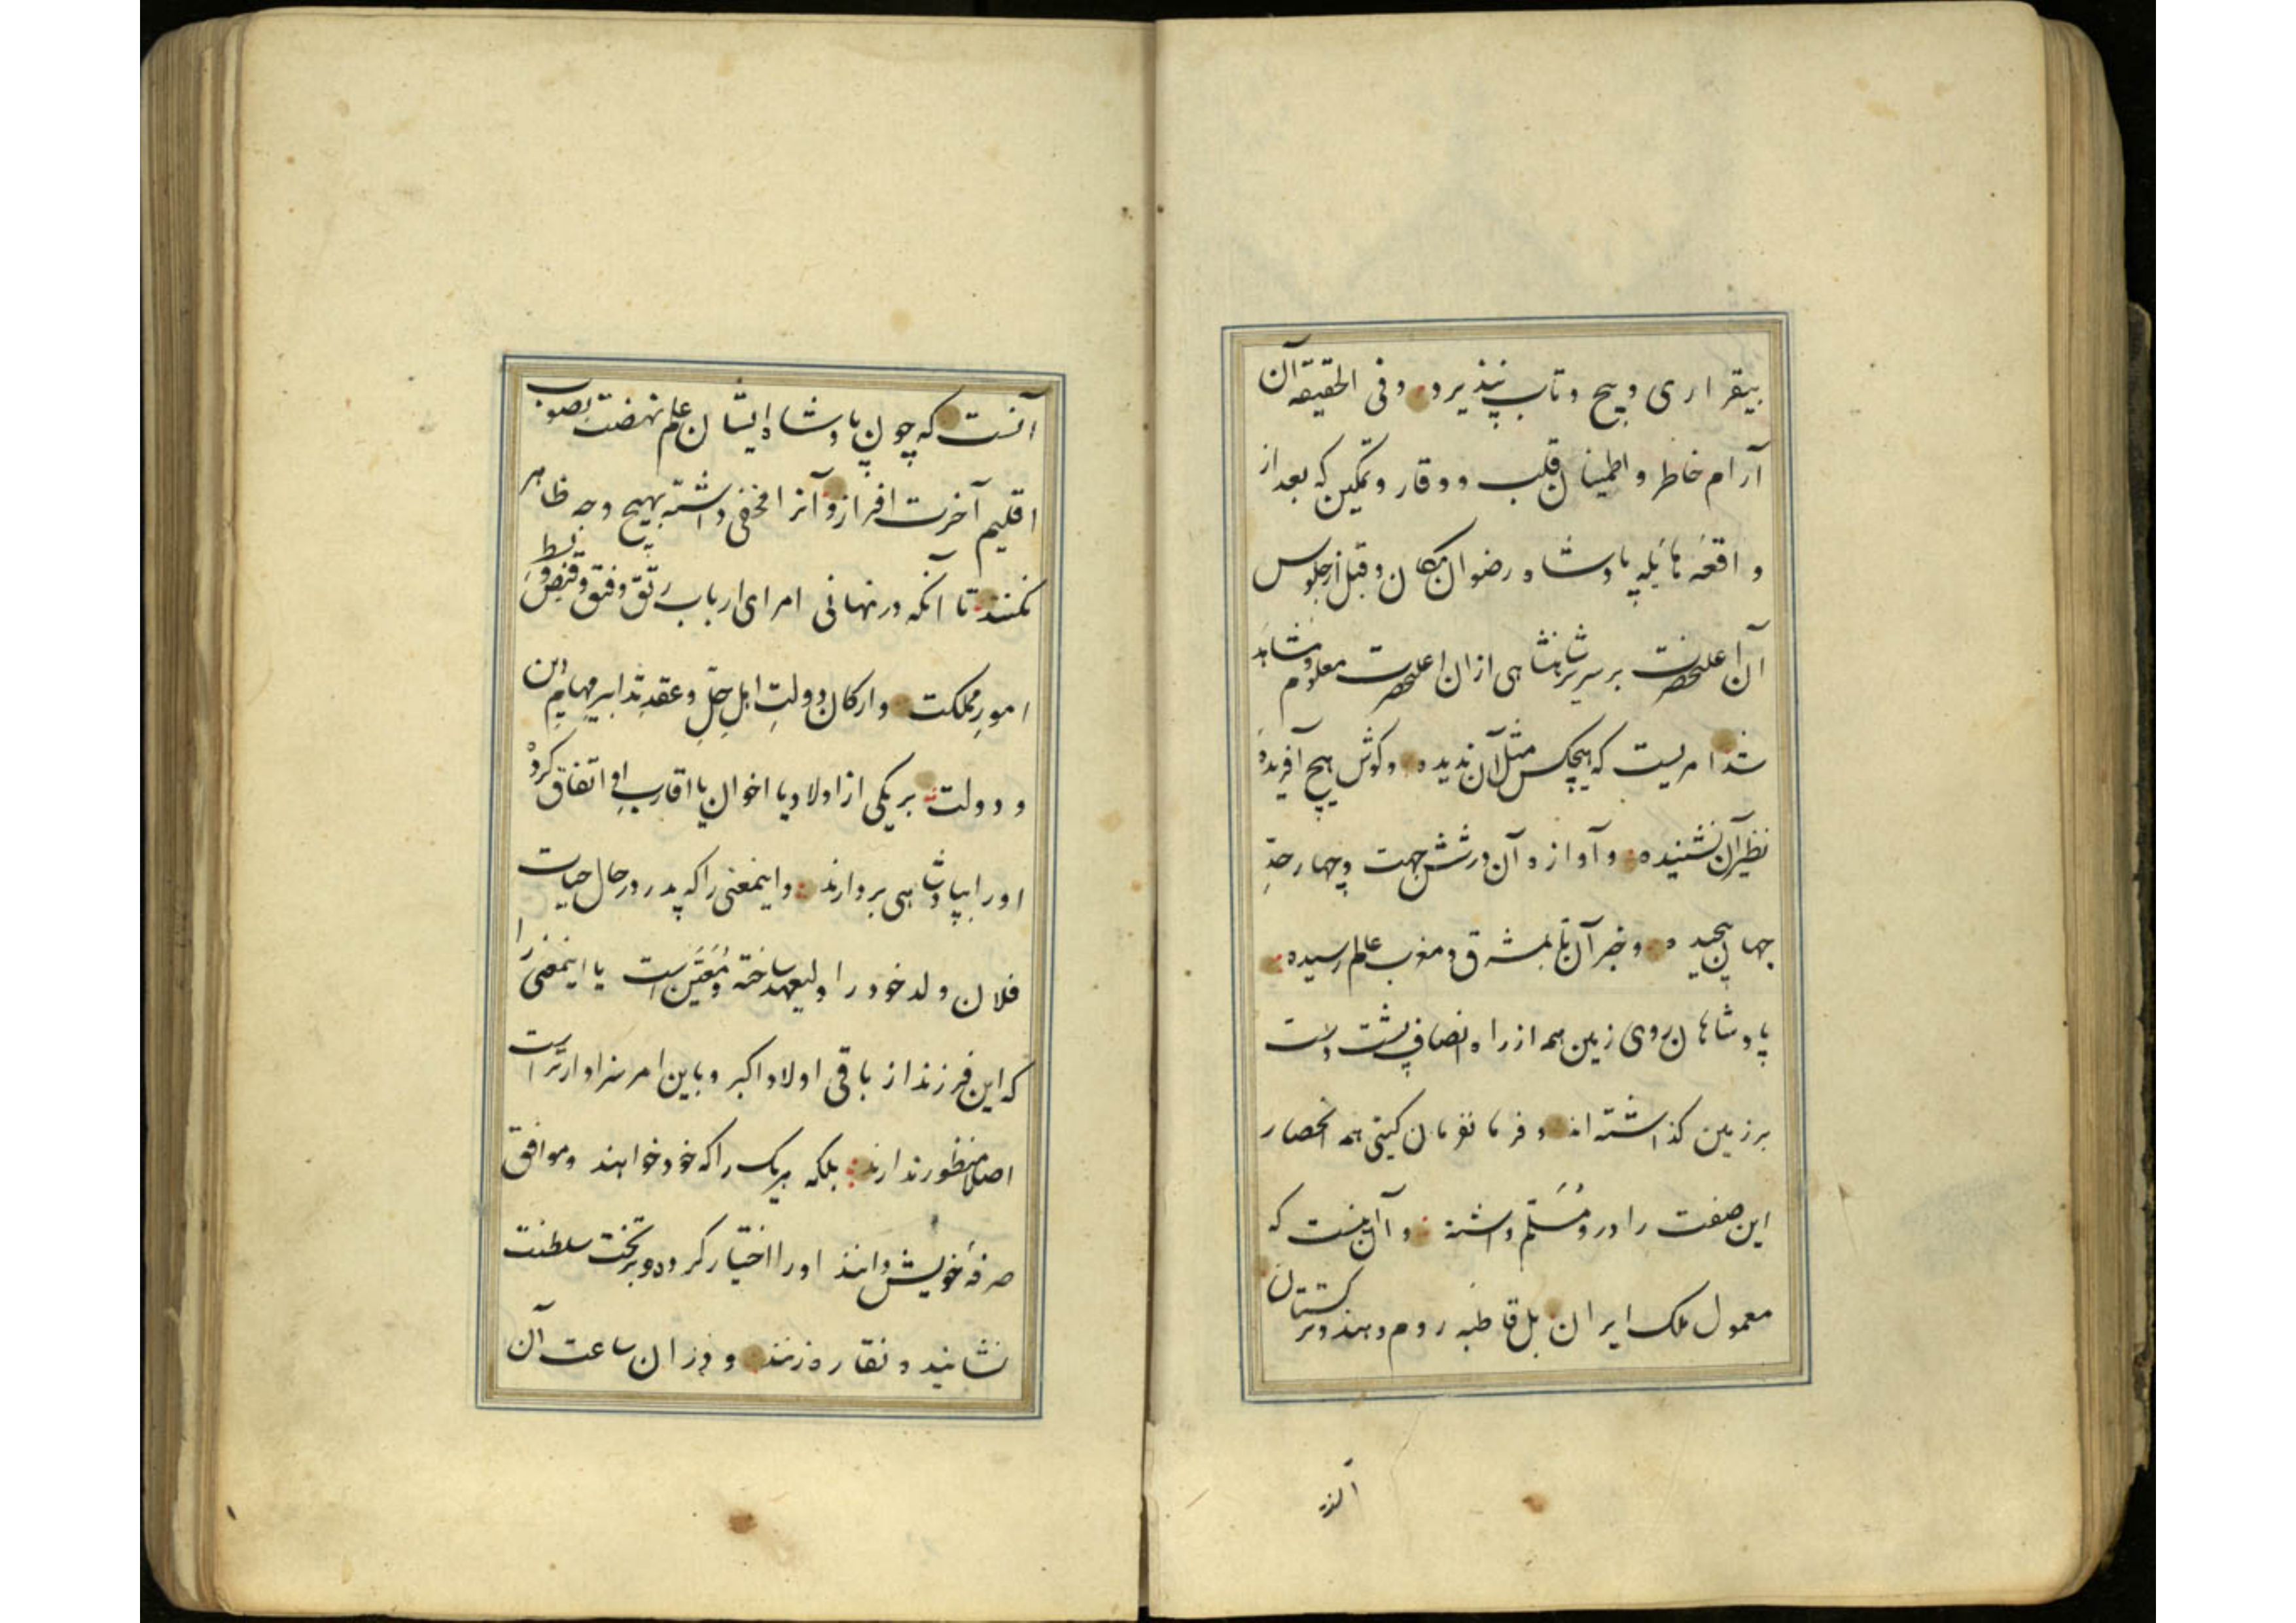 بیقراری و پیچ و تاب پذیرد و فی الحقیقه آن
آرام خاطر و اطمینان قلب و وقار و تمکین که بعد از
واقعهٔ هائلهٔ پادشاه رضوان مکان و قبل از جلوس
آن اعلیحضرت بر سریر شاهنشاهی از ان اعلیحضرت معلوم و مشاهد
شد امریست که هیچکس مثل آن ندیده و گوش هیچ آفریدهٔ
نظیر آن نشنیده و آوازه آن در شش جهت و چهار حدِّ
جهان پیچیده و خبر آن تا بمشرق و مغرب عالم رسیده
پادشاهان روی زمین همه از راه انصاف پشت دست
بر زمین گذاشته اند و فرمانفرمایان گیتی همه انحصار
این صفت را در و مُسَلّم داشته و آن اینست که
معمول ملک ایران بل قاطبه روم و هند و ترکستان
آنست که چون پادشاه ایشان علم نهضت بصوب
اقلیم آخرت افرازد آنرا مخفی داشته بهیچ وجه ظاهر
نکنند تا آنکه در نهانی امرای ارباب رتق و فتق و قبض و بسط
امورِ مملکت و ارکان دولتِ اهل حلّ و عقدِ تدابیرِ مهامِ دین
و دولت بر یکی از اولاد یا اخوان یا اقارب او اتفاق کرده
او را بپادشاهی بردارند و اینمعنی را که پدر در حال حیات
فلان ولد خود را ولیعهد ساخته و مُعَیَّن است یا اینمعنی را
که این فرزند از باقی اولاد اکبر و باین امر سزاوارتر است
اصلا منظور ندارند بلکه هر یک را که خود خواهند و موافق
صرفهٔ خویش دانند او را اختیار کرده و بر تخت سلطنت
نشانیده نقاره زنند و در ان ساعت آن